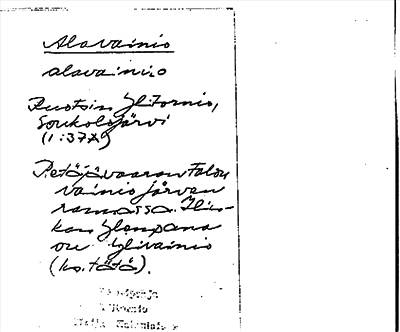 Alavainio
alavainio
Ruotsin Ylitornio,
Soukolojärvi
(1:37A)
Petäjävaaran talon
vainio järven
rannassa. His-
kan ylempänä
on Ylivainio
(ks. tätä).